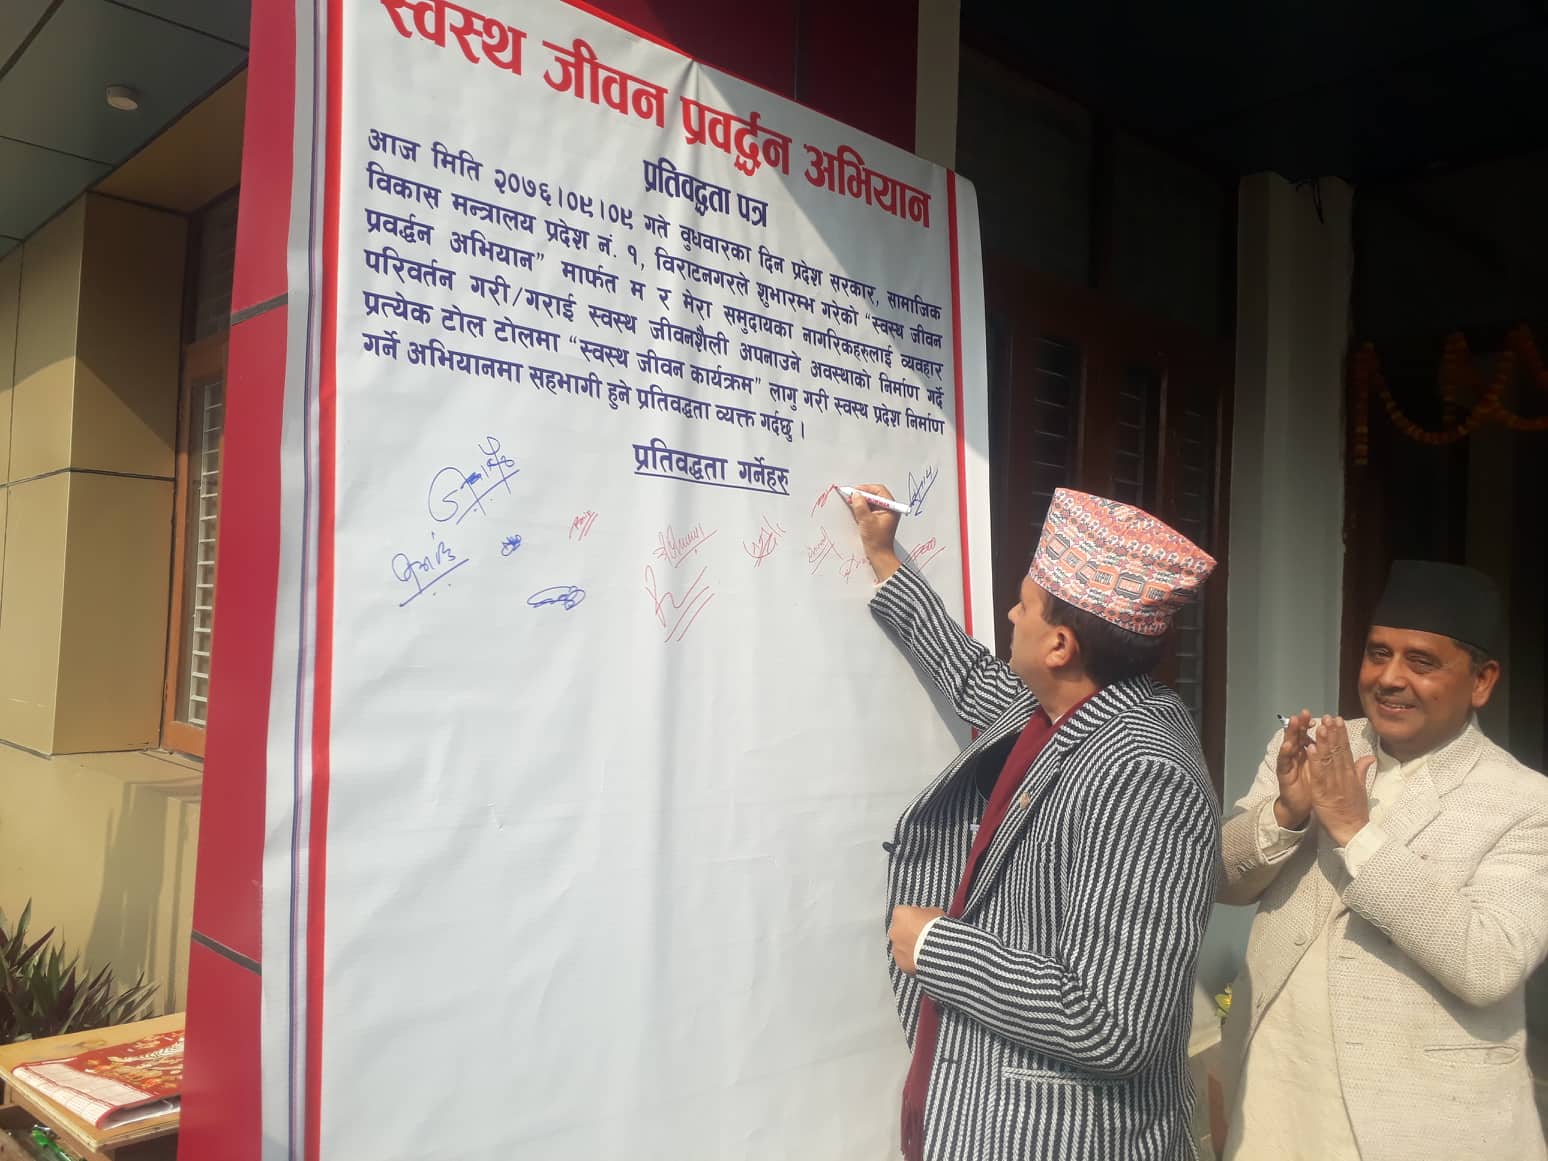 स्वस्थ जीवन प्रवर्द्धन अभियान
प्रतिवद्धता पत्र
आज मिति २०७६।०९।०९ गते वुधवारका दिन प्रदेश सरकार, सामाजिक
विकास मन्त्रालय प्रदेश नं. १, विराटनगरले शुभारम्भ गरेको “स्वस्थ जीवन
प्रवर्द्धन अभियान” मार्फत म र मेरा समुदायका नागरिकहरुलाई व्यवहार
परिवर्तन गरी/गराई स्वस्थ जीवनशैली अपनाउने अवस्थाको निर्माण गर्दे
प्रत्येक टोल टोलमा “स्वस्थ जीवन कार्यक्रम” लागु गरी स्वस्थ प्रदेश निर्माण
गर्ने अभियानमा सहभागी हुने प्रतिवद्धता व्यक्त गर्दछु ।
प्रतिवद्धता गर्नेहरु